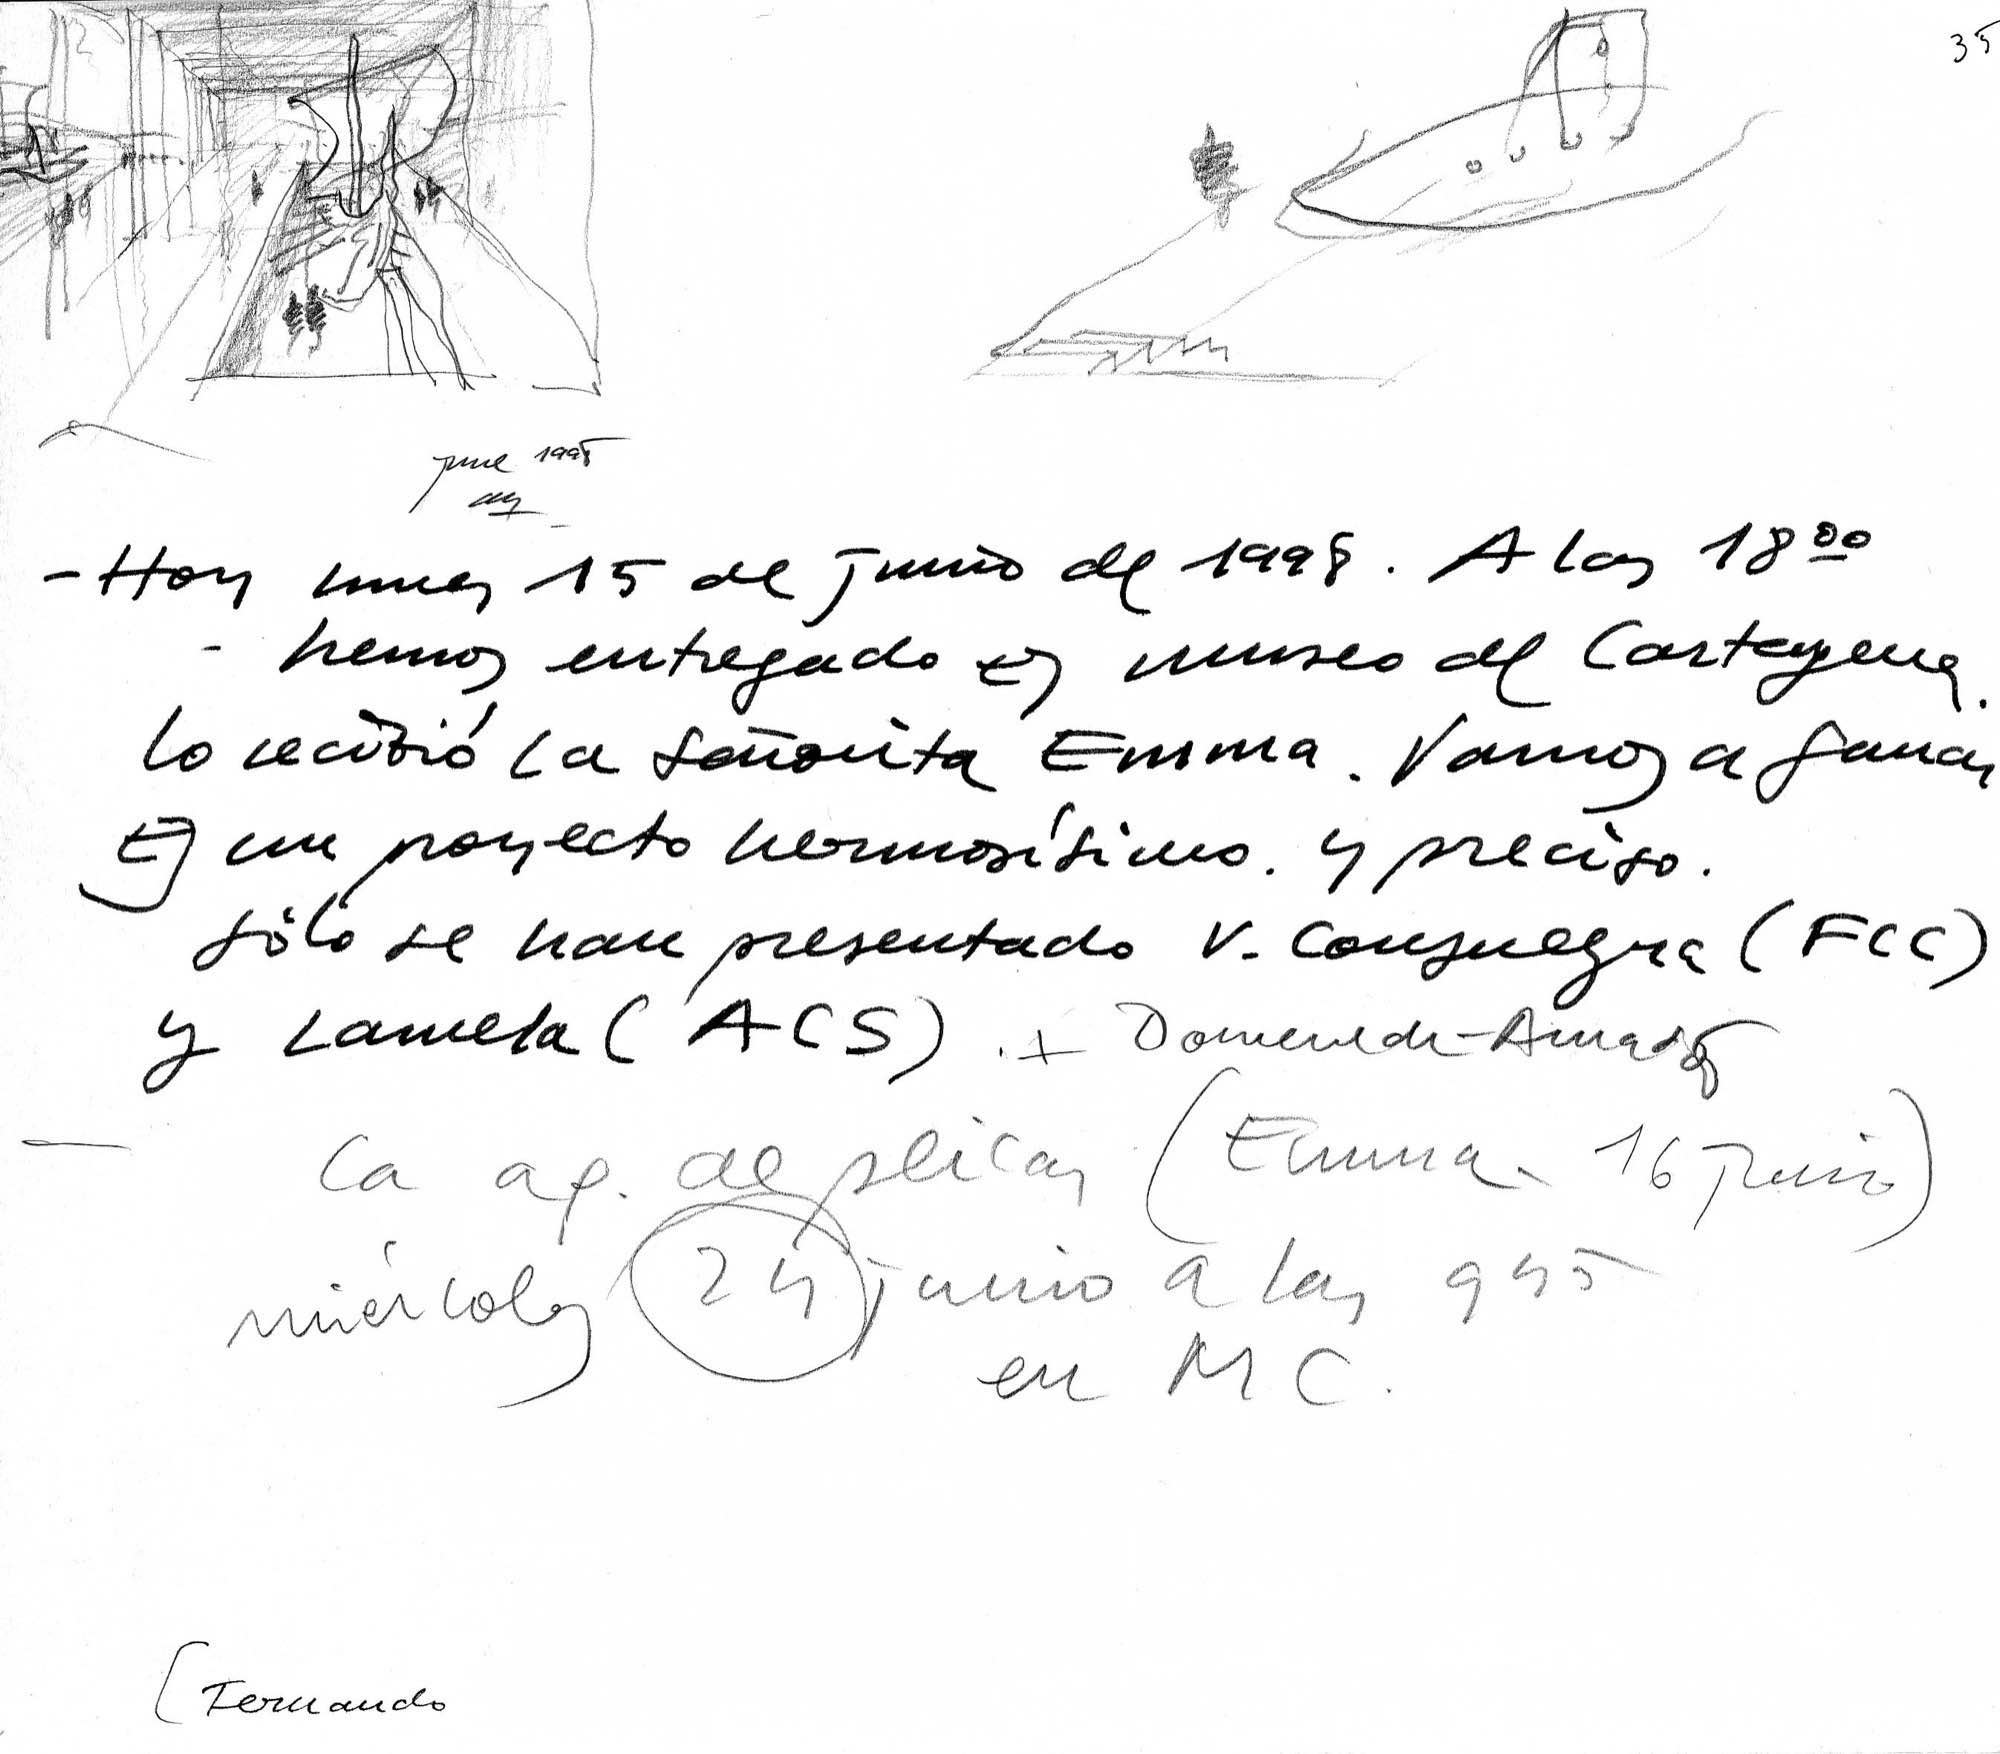 35
june 1998
- Hoy lunes 15 de junio de 1998. A las 18⁰⁰
- hemos entregado el museo de Cartagena.
lo recibió la Señorita Emma. Vamos a ganar
Es un proyecto hermosísimo. y preciso.
sólo se han presentado V. Consuegra (FCC)
y Lamela (ACS). + Domenech-Amador
— la ap. de plicas (Emma. 16 junio)
miércoles 24 junio a las 945
en MC.
(Fernando